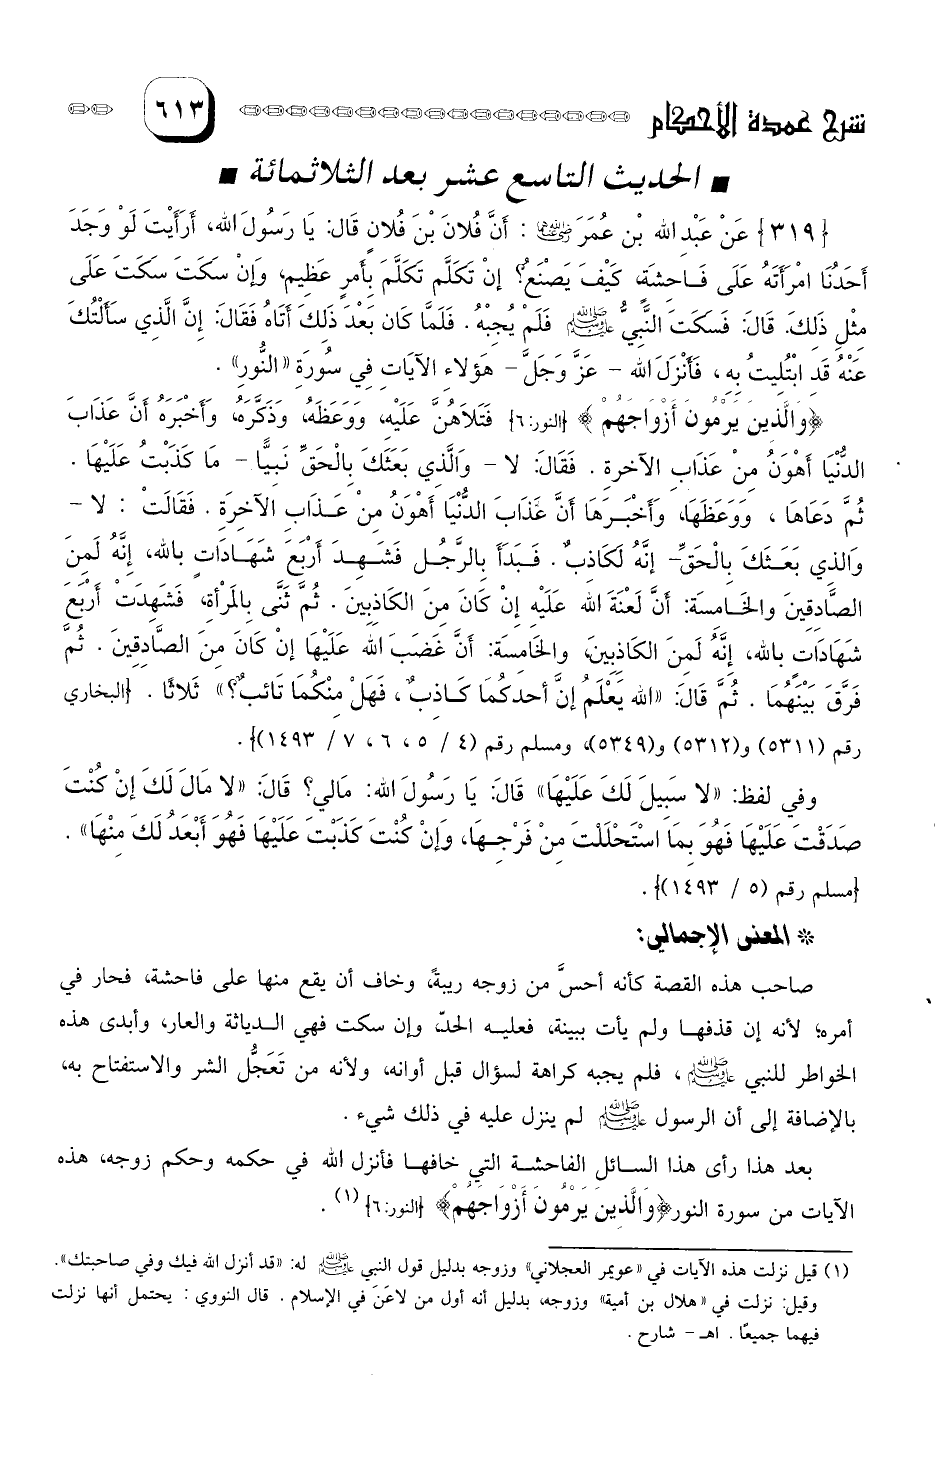 شرح عمدة الأحكام ٦١٣
■ الحديث التاسع عشر بعد الثلاثمائة ■
{٣١٩} عَنْ عَبْدِ الله بْنِ عُمَرَ رضي الله عنهما : أَنَّ فُلَانَ بْنَ فُلَان قَالَ: يَا رَسُولَ الله، أَرَأَيْتَ لَوْ وَجَدَ
أَحَدُنَا امْرَأَتَهُ عَلَى فَاحشَة، كَيْفَ يَصْنَعُ؟ إِنْ تَكَلَّمَ تَكَلَّمَ بِأَمرٍ عَظِيم، وَإِنْ سَكَتَ سَكَتَ عَلَى
مثْل ذَلكَ. قَالَ: فَسكَتَ النَّبيُّ ﷺ فَلَمْ يُجبْهُ. فَلَمَّا كَان بَعْدَ ذَلكَ أَتَاهُ فَقَالَ: إنَّ الَّذي سَأَلْتُكَ
عَنْهُ قَد ابْتُليتُ به، فَأَنْزَلَ الله - عَزَّ وَجَلَّ - هَؤلاء الآيَات في سُورَة «النُّور» .
﴿وَالَّذينَ يَرْمُونَ أَزْوَاجَهُمْ﴾ {النور:٦} فَتَلَاهُنَّ عَلَيْه، وَوَعَظَهُ، وَذَكَّرَهُ، وَأَخْبَرَهُ أَنَّ عَذَابَ
الدُّنْيَا أَهْوَنُ منْ عَذَاب الآخرة . فَقَالَ: لا - وَالَّذي بَعَثَكَ بالْحَقِّ نَبيًّا - مَا كَذَبْتُ عَلَيْهَا .
ثُمَّ دَعَاهَا ، وَوَعَظَهَا، وَأَخْبَرَهَا أَنَّ عَذَابَ الدُّنْيَا أَهْوَنُ منْ عَذَاب الآخرَة . فَقَالَتْ : لا -
وَالذي بَعَثَكَ بالْحَقِّ - إنَّهُ لَكَاذبٌ . فَبَدَأَ بالرَّجُل فَشَهدَ أَرْبَعَ شَهَادَات بالله، إنَّهُ لَمنَ
الصَّادقينَ والخَامسَة: أَنَّ لَعْنَةَ الله عَلَيْه إنْ كَانَ منَ الكَاذبينَ . ثُمَّ ثَنَّى بالمَرْأَة، فَشَهدَتْ أَرْبَعَ
شَهَادَات بالله، إنَّهُ لَمنَ الكَاذبينَ، والخَامسَةَ: أَنَّ غَضَبَ الله عَلَيْهَا إنْ كَانَ منَ الصَّادقينَ . ثُمَّ
فَرَّقَ بَيْنَهُمَا . ثُمَّ قَالَ: «الله يَعْلَمُ إنَّ أَحدكُمَا كَاذبٌ، فَهَلْ منْكُمَا تَائبٌ؟» ثَلاثًا . {البخاري
رقم (٥٣١١) و(٥٣١٢) و(٥٣٤٩)، ومسلم رقم (٤ / ٥ ، ٦ ، ٧ / ١٤٩٣)} .
وفي لفظ: «لا سَبيلَ لَكَ عَلَيْهَا» قَالَ: يَا رَسُولَ الله: مَالي؟ قَالَ: «لا مَالَ لَكَ إنْ كُنْتَ
صَدَقْتَ عَلَيْهَا فَهُوَ بمَا اسْتَحْلَلْتَ منْ فَرْجهَا، وَإنْ كُنْتَ كَذَبْتَ عَلَيْهَا فَهُوَ أَبْعَدُ لَكَ منْهَا» .
{مسلم رقم (٥ / ١٤٩٣)} .
* المعنى الإجمالي:
صاحب هذه القصة كأنه أحسَّ من زوجه ريبةً، وخاف أن يقع منها على فاحشة، فحار في
أمره؛ لأنه إن قذفها ولم يأت ببينة، فعليه الحدّ، وإن سكت فهي الدياثة والعار، وأبدى هذه
الخواطر للنبي ﷺ ، فلم يجبه كراهة لسؤال قبل أوانه، ولأنه من تَعَجُّل الشر والاستفتاح به،
بالإضافة إلى أن الرسول ﷺ لم ينزل عليه في ذلك شيء .
بعد هذا رأى هذا السائل الفاحشة التي خافها فأنزل الله في حكمه وحكم زوجه، هذه
الآيات من سورة النور﴿وَالَّذينَ يَرْمُونَ أَزْوَاجَهُمْ﴾ {النور:٦} (١) .
(١) قيل نزلت هذه الآيات في «عويمر العجلاني» وزوجه بدليل قول النبي ﷺ له: «قد أنزل الله فيك وفي صاحبتك».
وقيل: نزلت في «هلال بن أمية» وزوجه، بدليل أنه أول من لاعَنَ في الإسلام . قال النووي : يحتمل أنها نزلت
فيهما جميعًا . اهـ - شارح .